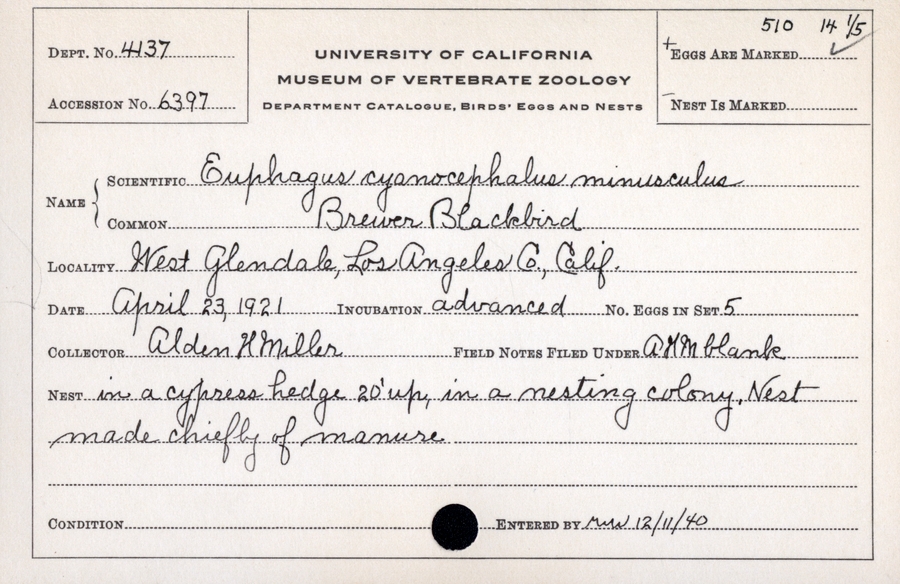 510 14 1/5
DEPT. NO. 4137
UNIVERSITY OF CALIFORNIA
+EGGS ARE MARKED ✓
MUSEUM OF VERTEBRATE ZOOLOGY
ACCESSION NO. 6397
DEPARTMENT CATALOGUE, BIRDS' EGGS AND NESTS
–NEST IS MARKED
NAME { SCIENTIFIC Euphagus cyanocephalus minusculus
COMMON Brewer Blackbird
LOCALITY West Glendale, Los Angeles Co., Calif.
DATE April 23, 1921 INCUBATION advanced NO. EGGS IN SET 5
COLLECTOR Alden H Miller FIELD NOTES FILED UNDER AHM blank
NEST in a cypress hedge 20' up, in a nesting colony. Nest
made chiefly of manure
CONDITION ENTERED BY 12/11/40